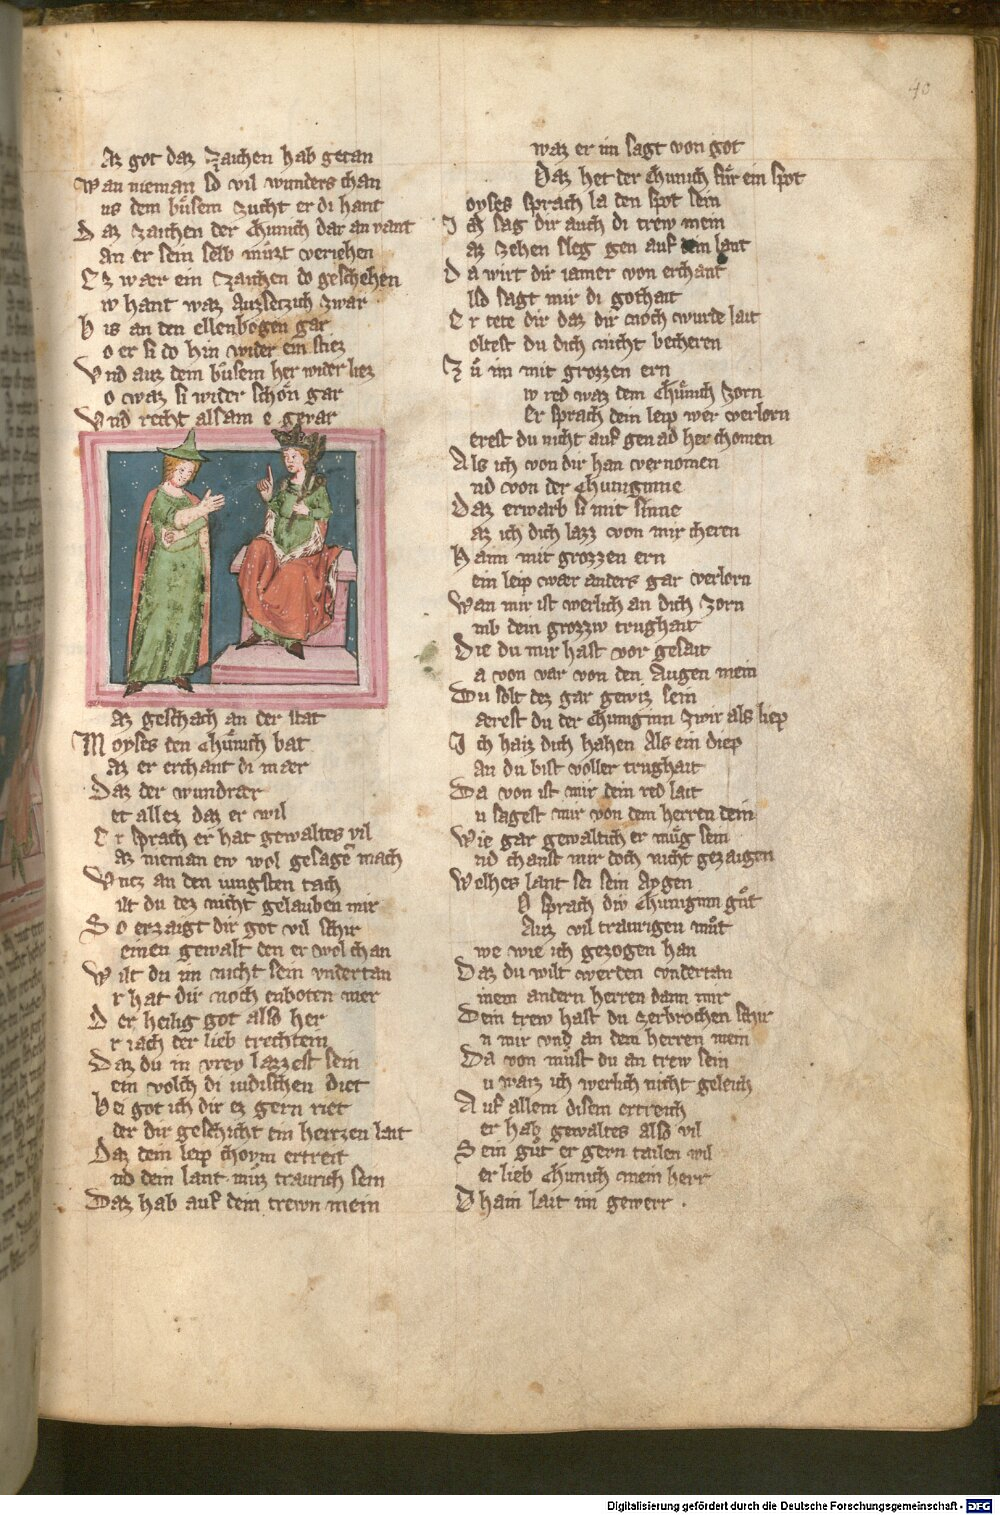 40
Az got daz zaichen hab getan
Wan nieman so vil wunders chan
us dem bůsem zucht er di hant
Daz zaichen der Chunich dar an vant
an er sein selb můzt veriehen
Ez wær ein zaichen do geschehen
w hant waz auzsetzich zwar
His an den ellenbogen gar
o er si do hin wider ein stiez
Vnd auz dem bůsem her wider liez
o waz si wider schön gar
Vnd recht alsam e gevar
Az geschach an der stat
Moyses den Chůnich bat
Az er erchant di mær
Daz der wundrær
et allez daz er wil
Er sprach er hat gewaltes vil
az nieman ew wol gesagē mach
Wncz an den iungsten tach
ilt du dez nicht gelauben mir
So erzaigt dir got vil schir
einen gewalt den er wol chan
Wilt du im nicht sein vndertan
r hat dir noch enboten mer
Der heilig got also her
r iach der lieb trechtein
Daz du in vrey lazzest sein
ein volch di iudischen diet
Bei got ich dir ez gern riet
der dir geschicht ein hertzen lait
Daz dein leip choum ertreit
nd dein lant můz traurich sein
Daz hab auf dein trewn mein
waz er im sagt von got
Daz het der Chunich fůr ein spot
oyses sprach la den spot sein
Ich sag dir auch di trew mein
az zehen sleg gen auf dein lant
Da wirt dir iamer von erchant
lso sagt mir di gothait
Er tete dir daz dir noch wurde lait
oltest du dich nicht becheren
Zů im mit grozzen ern
w red waz dem Chůnich zorn
Er sprach dein leip wer verlorn
erest du nicht auf genad her chomen
Als ich von dir han vernomen
nd von der Chuniginne
Daz erwarb si mit sinne
az ich dich lazz von mir cheren
Haim mit grozzen ern
ein leip wær anders gar verlorn
Wan mir ist werlich an dich zorn
mb dein grozzw trughait
Die du mir hast vor gesait
a von var von den Augen mein
Du solt dez gar gewiz sein
aerest du der Chuniginn zwir als liep
Ich haiz dich hahen Als ein diep
an du bist voller trughait
Da von ist mir dein red lait
u sagest mir von dem herren dein
Wie gar gewaltich er můg sein
nd chanst mir doch nicht gezaigen
Welhes lant sei sein Aygen
O sprach div Chuniginn gůt
Auz vil traurigen můt
we wie ich gezogen han
Daz du wilt werden vndertan
inem andern herren dann mir
Dein trew hast du zerbrochen schir
n mir vnd an dem herren mein
Da von můst du an trew sein
u waiz ich werlich nicht geleich
Auf allem disem ertreich
er hab gewaltes also vil
Sein gůt er gern tailen wil
er lieb Chunich mein herr
Dhain lait im gewerr .
Digitalisierung gefördert durch die Deutsche Forschungsgemeinschaft - DFG